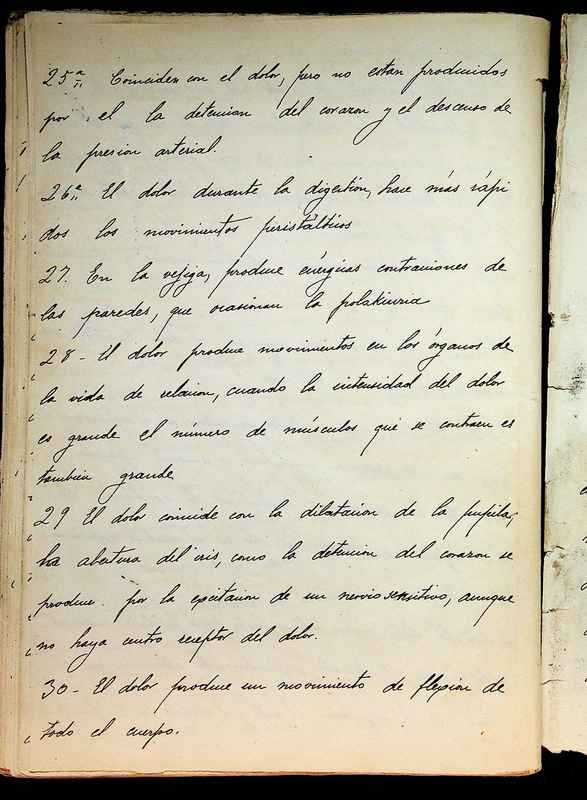 25ª Coinciden con el dolor, pero no estan producidos
por el la detencion del corazon y el descenso de
la presion arterial.
26ª El dolor durante la digestion, hace más rápi
dos los movimientos peristálticos
27. En la vejiga, produce enérgicas contracciones de
las paredes, que ocasionan la polakiuria
28 - El dolor produce movimientos en los órganos de
la vida de relacion, cuando la intensidad del dolor
es grande el número de músculos que se contraen es
tambien grande
29 El dolor coincide con la dilatacion de la pupila;
ha abertura del iris, como la detencion del corazon se
produce por la excitacion de un nervio sensitivo, aunque
no haya centro receptor del dolor.
30 - El dolor produce un movimiento de flexion de
todo el cuerpo.